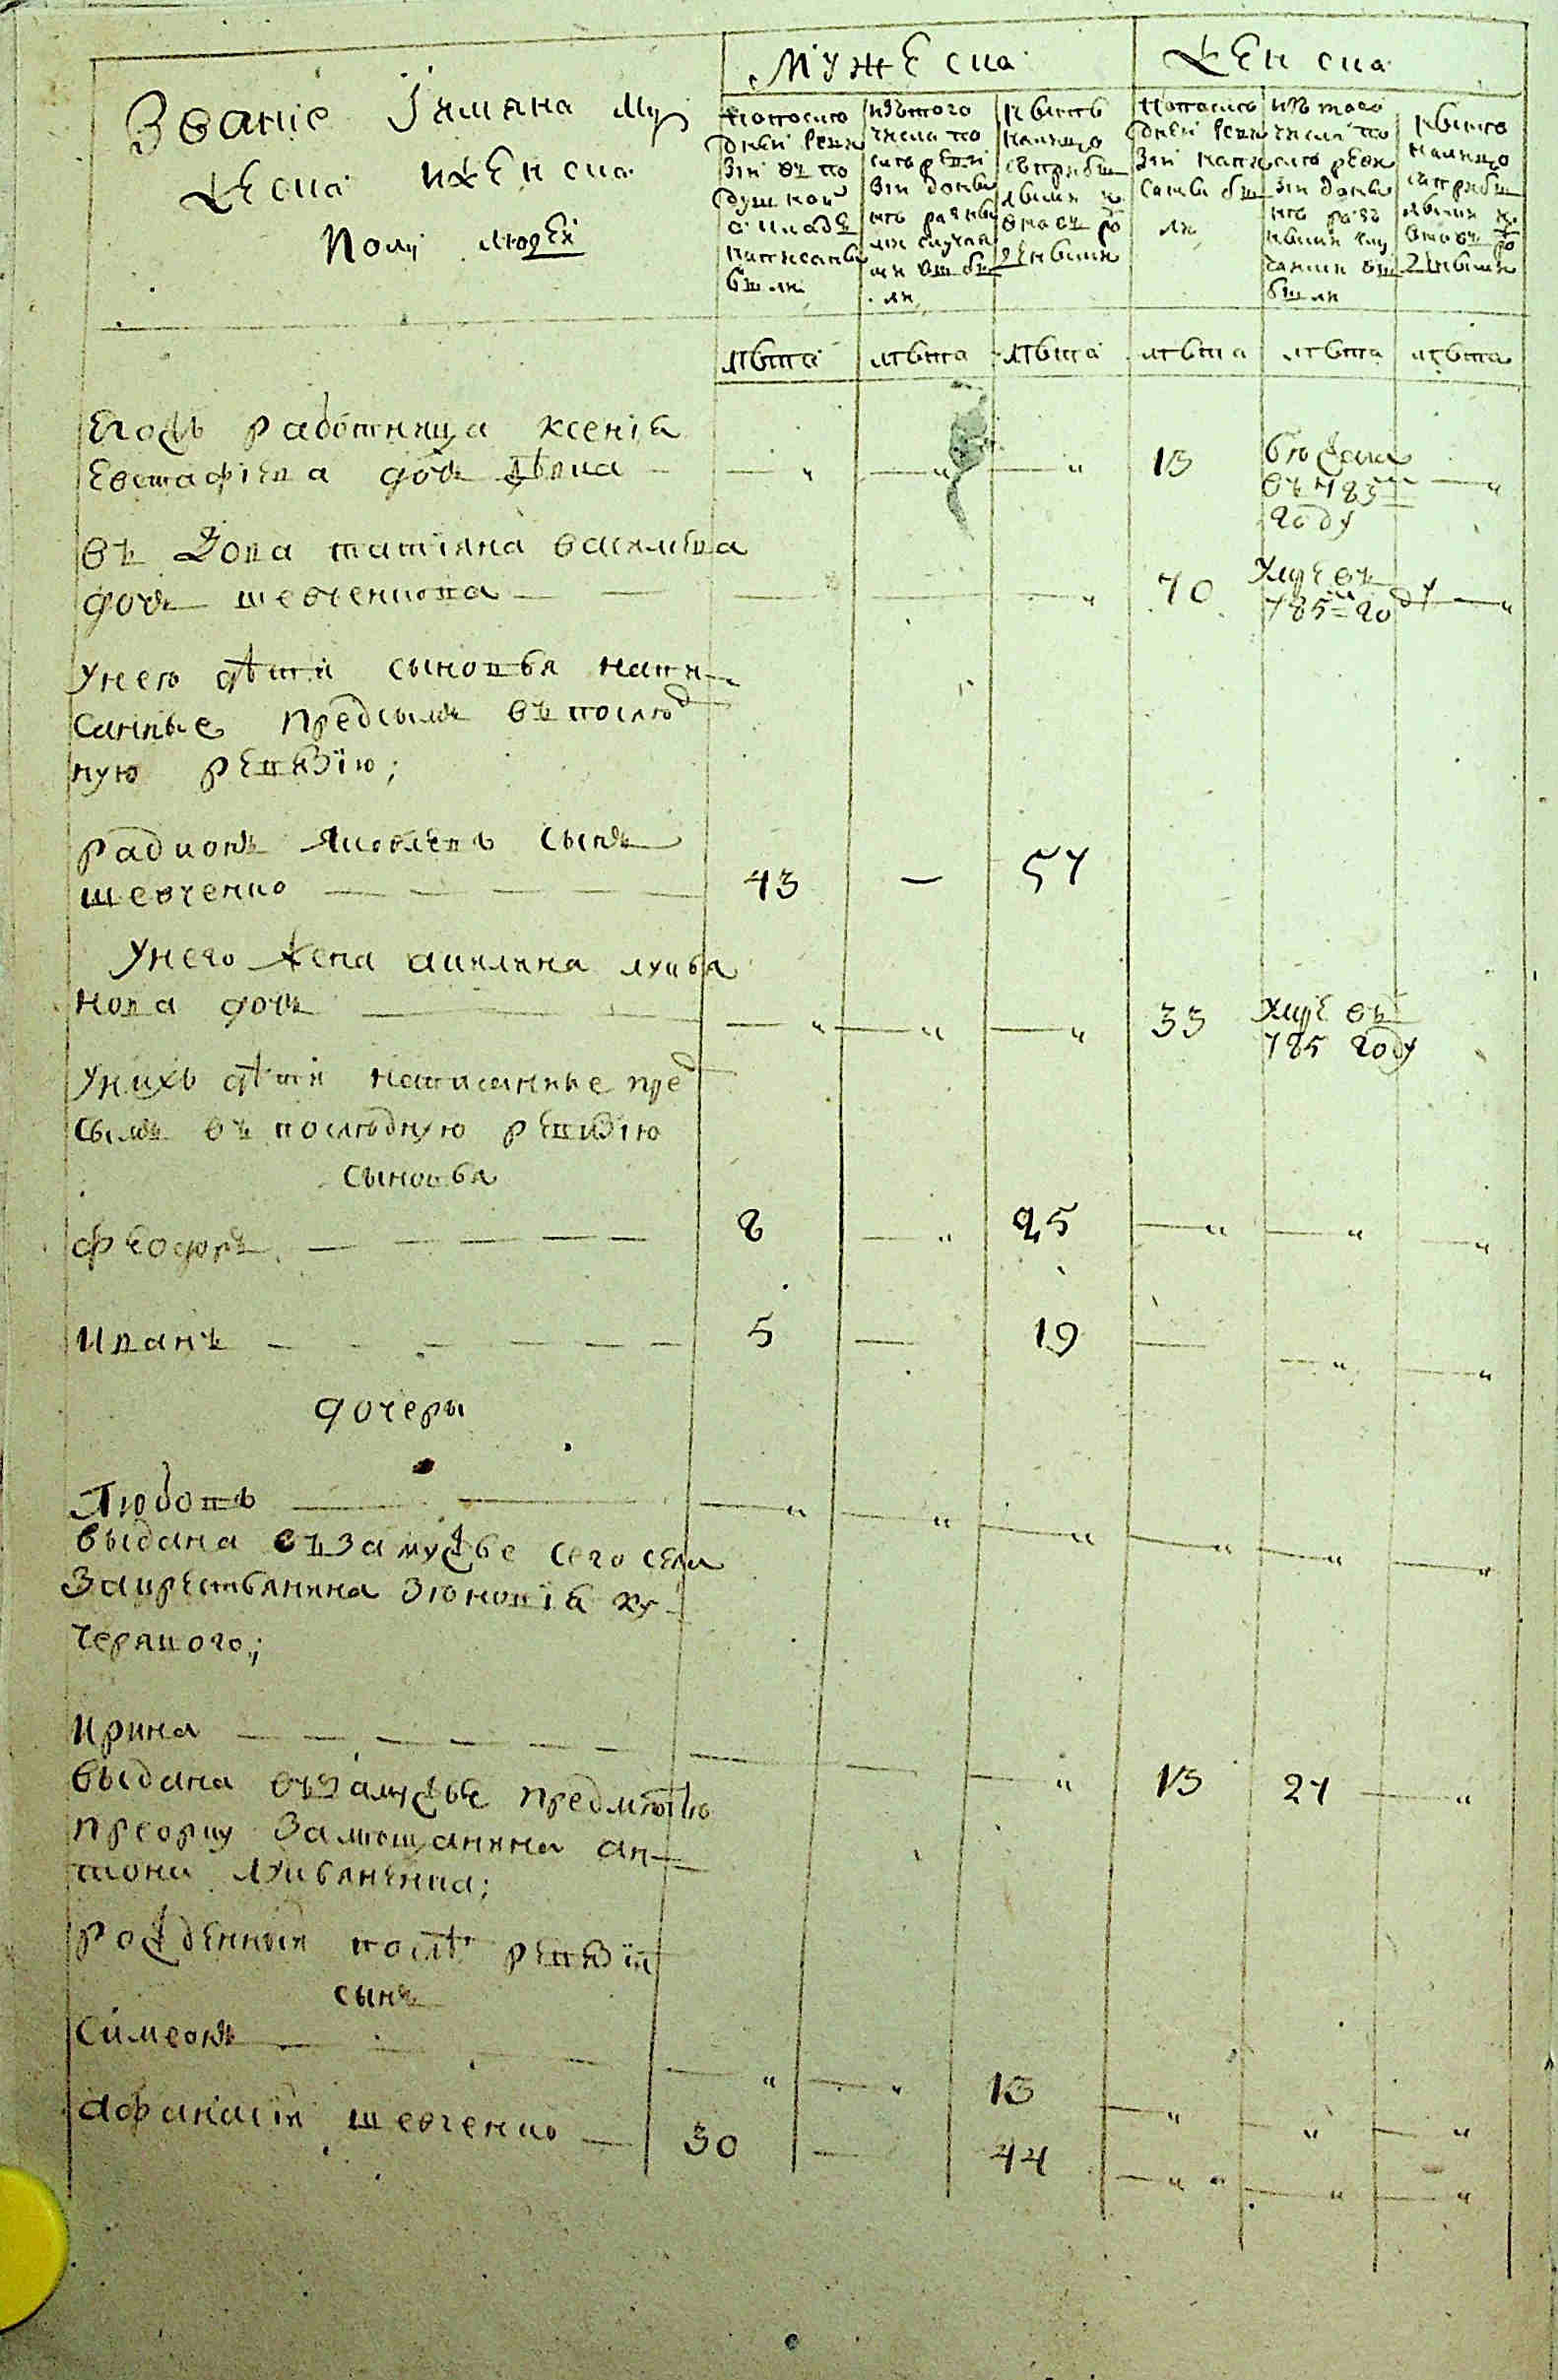 Званіе Iимяна Му
жеска иженска
Полу людЕй
Мужеска
Женска
Попослѣ
дней реви
зіи въ по
душной
окладъ
написанны
были
изътого
числа по
слѣ ревизіи
были
Нынѣ
налицо
съприбы
лыми и
вновь ро
жденными
Попослѣ
дней реви
зіи напи
санны бы
ли
изъ того
числа по
слѣ реви
зіи
были
Нынѣ
налицо
съприбы
лыми и
вновь ро
жденными
лѣта лѣта лѣта лѣта лѣта лѣта
Егожъ работница ксенія
Евстафіева дочь дѣвка 13 бѣжала
въ 785м
году
въ Дова татіяна василіева
дочь шевченкова 70 умре въ
785м году
Унею дѣти сыновья напи
санные предсымъ въпослѣд
ную ревизію;
радионъ Яковлевъ сынъ
шевченко 43 — 57
Унего жена акилина лукья
нова дочь 33 умре въ
785 году
Унихъ дѣти написанные пред
сымъ въ послѣдную ревизію
сыновья
Феодоръ 8 25
Иванъ 5 — 19
дочеры
Любовь
выдана взамужье сего села
Закрестьянина Зѣновія ку
черявого;
Ирина 13 27
выдана взамужье предмѣстю
Замѣщанина ан
тона лукьяненка;
рожденный послѣ ревизіи
сынъ
Симеонъ 13
Афанасій шевченко 30 — 44